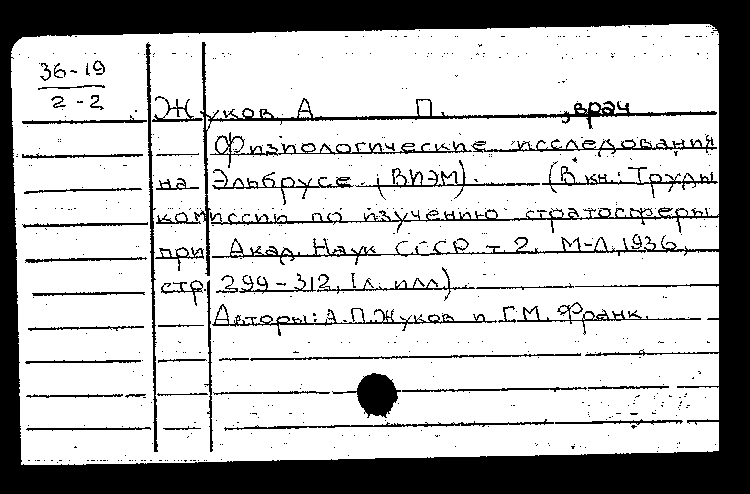 36-19
2-2
Жуков, А. П. , врач
Физиологические исследования
на Эльбрусе (ВИЭМ). (В кн.: Труды
комиссии по изучению стратосферы
при Акад. Наук СССР т 2. М-Л, 1936,
стр 299-312, 1 л. илл.)
Авторы: А.П.Жуков и Г.М. Франк.